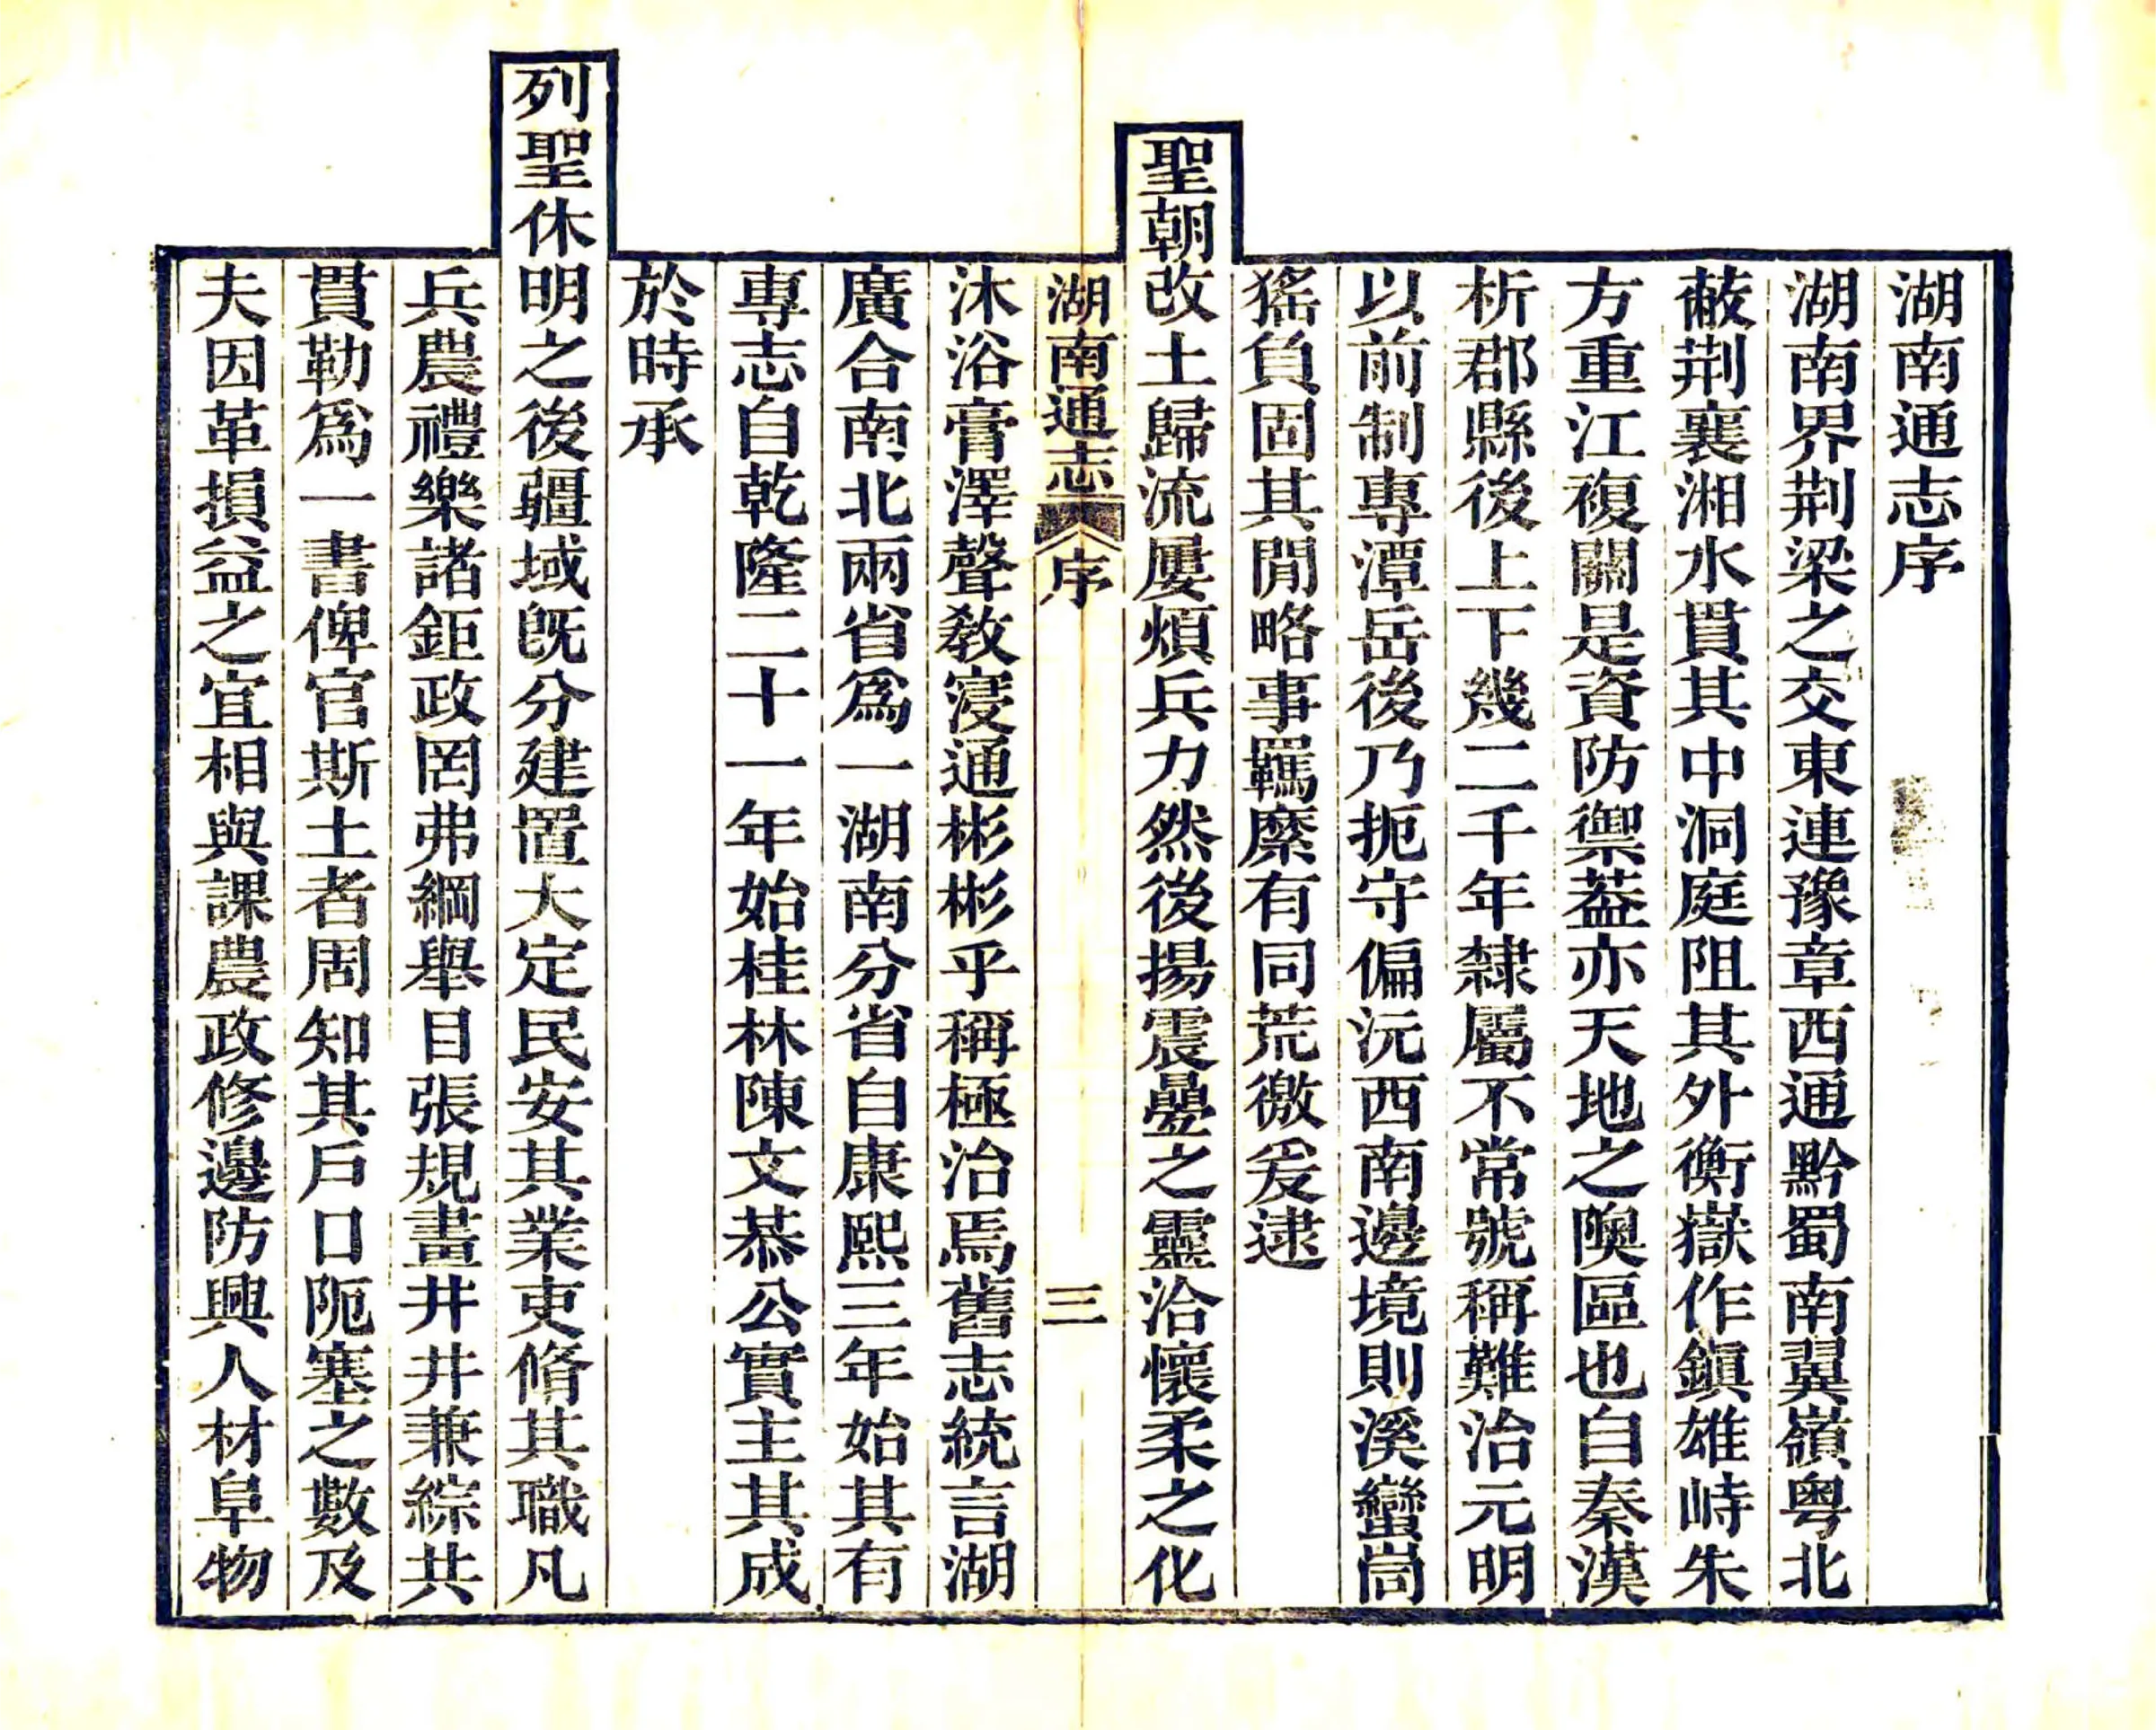 湖南通志序
湖南界荆梁之交東連豫章西通黔蜀南翼嶺粤北
蔽荆襄湘水貫其中洞庭阻其外衡嶽作鎭雄峙朱
方重江複關是資防禦葢亦天地之隩區也自秦漢
析郡縣後上下幾二千年隸屬不常號稱難治元明
以前制專潭岳後乃扼守偏沅西南邊境則溪蠻峝
猺負固其閒略事羈縻有同荒徼爰逮
聖朝改土歸流屢煩兵力然後揚震疊之靈洽懷柔之化
湖南通志 序 三
沐浴膏澤聲敎寖通彬彬乎稱極治焉舊志統言湖
廣合南北兩省爲一湖南分省自康熙三年始其有
專志自乾隆二十一年始桂林陳文恭公實主其成
於時承
列聖休明之後疆域旣分建置大定民安其業吏脩其職凡
兵農禮樂諸鉅政罔弗綱舉目張規畫井井兼綜共
貫勒爲一書俾官斯土者周知其戶口阨塞之數及
夫因革損益之宜相與課農政修邊防興人材阜物